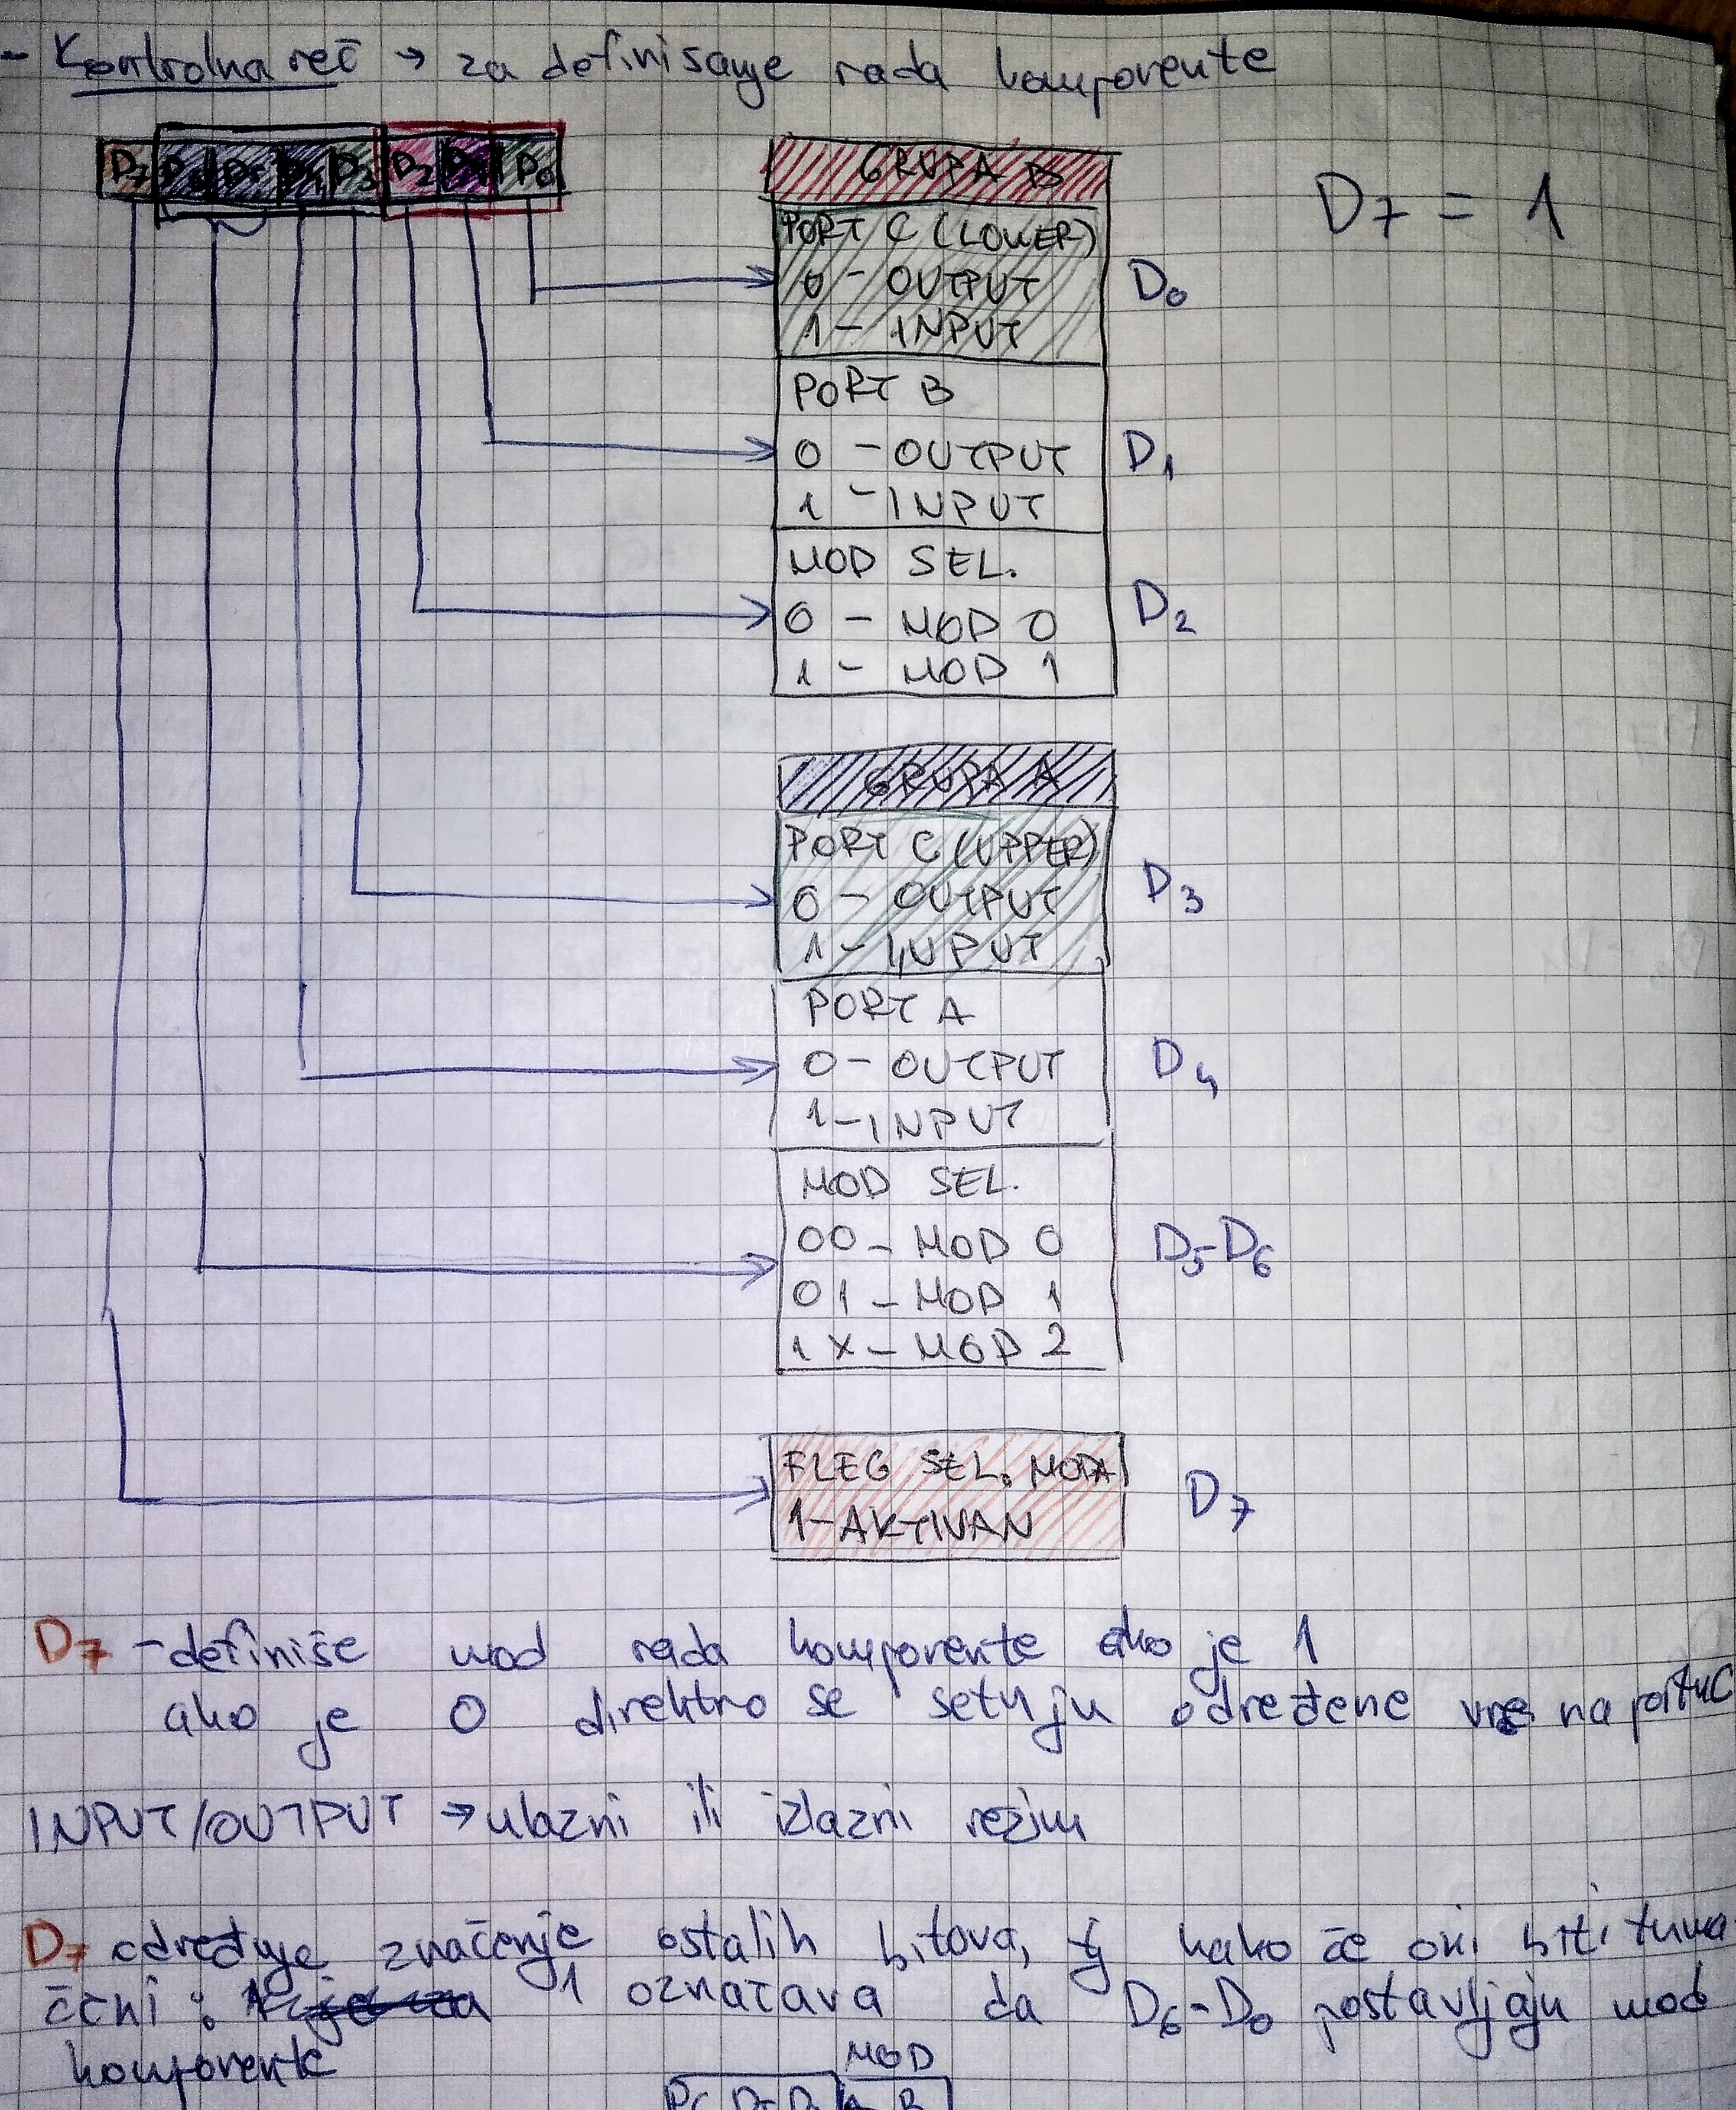 - Kontrolna reč → za definisanje rada komponente
D7 D6 D5 D4 D3 D2 D1 D0
GRUPA B
D7 = 1
PORT C (LOWER)
0 - OUTPUT
D0
1 - INPUT
PORT B
0 - OUTPUT
D1
1 - INPUT
MOD SEL.
0 - MOD 0
D2
1 - MOD 1
GRUPA A
PORT C (UPPER)
0 - OUTPUT
D3
1 - INPUT
PORT A
0 - OUTPUT
D4
1 - INPUT
MOD SEL.
00 - MOD 0
D5-D6
01 - MOD 1
1X - MOD 2
FLEG SEL. MODA
1 - AKTIVAN
D7
D7 - definiše mod rada komponente ako je 1
ako je 0 direktno se setuju određene vre na portu C
INPUT/OUTPUT → ulazni ili izlazni režim
D7 određuje značenje ostalih bitova, tj kako će oni biti tuma
čeni : 1 označava da D6-D0 postavljaju mod
komponente
MOD
A B